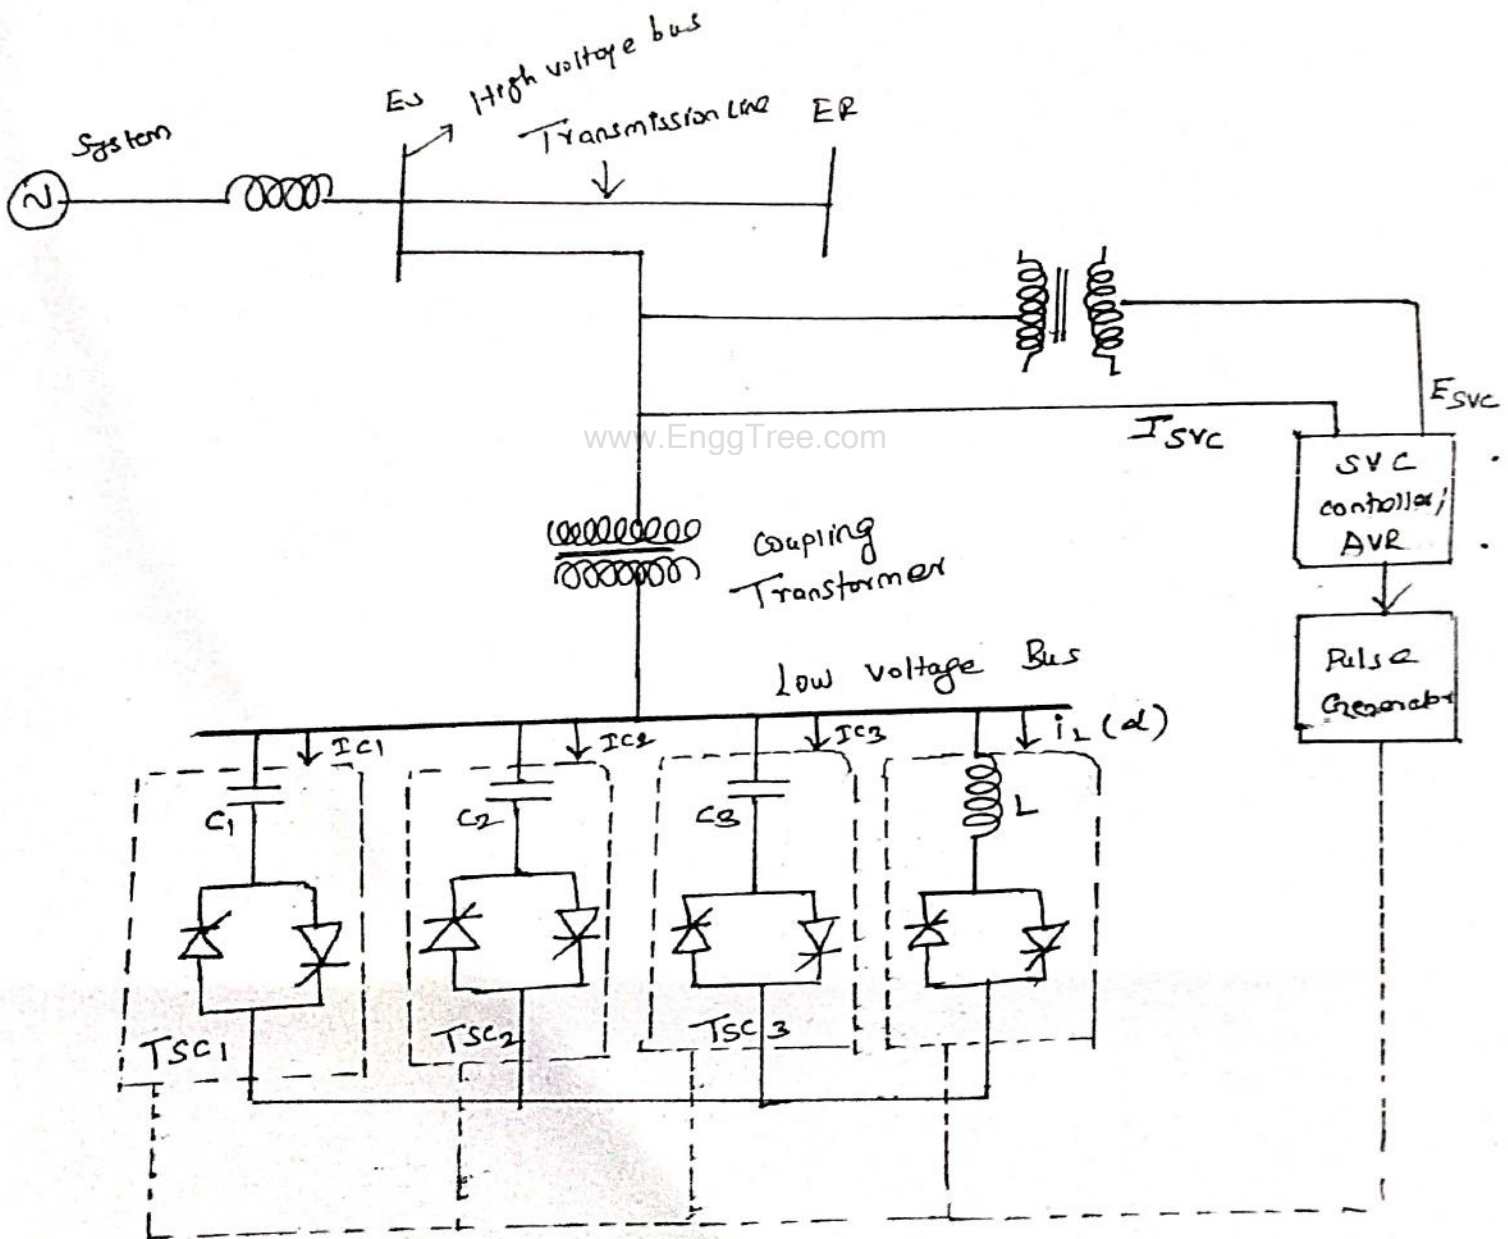 System
Es
High voltage bus
Transmission Line
ER
www.EnggTree.com
ESVC
ISVC
SVC
controller/
AVR
Coupling
Transformer
Pulse
Generator
Low voltage Bus
IC1
IC2
IC3
iL(α)
C1
C2
C3
L
TSC1
TSC2
TSC3